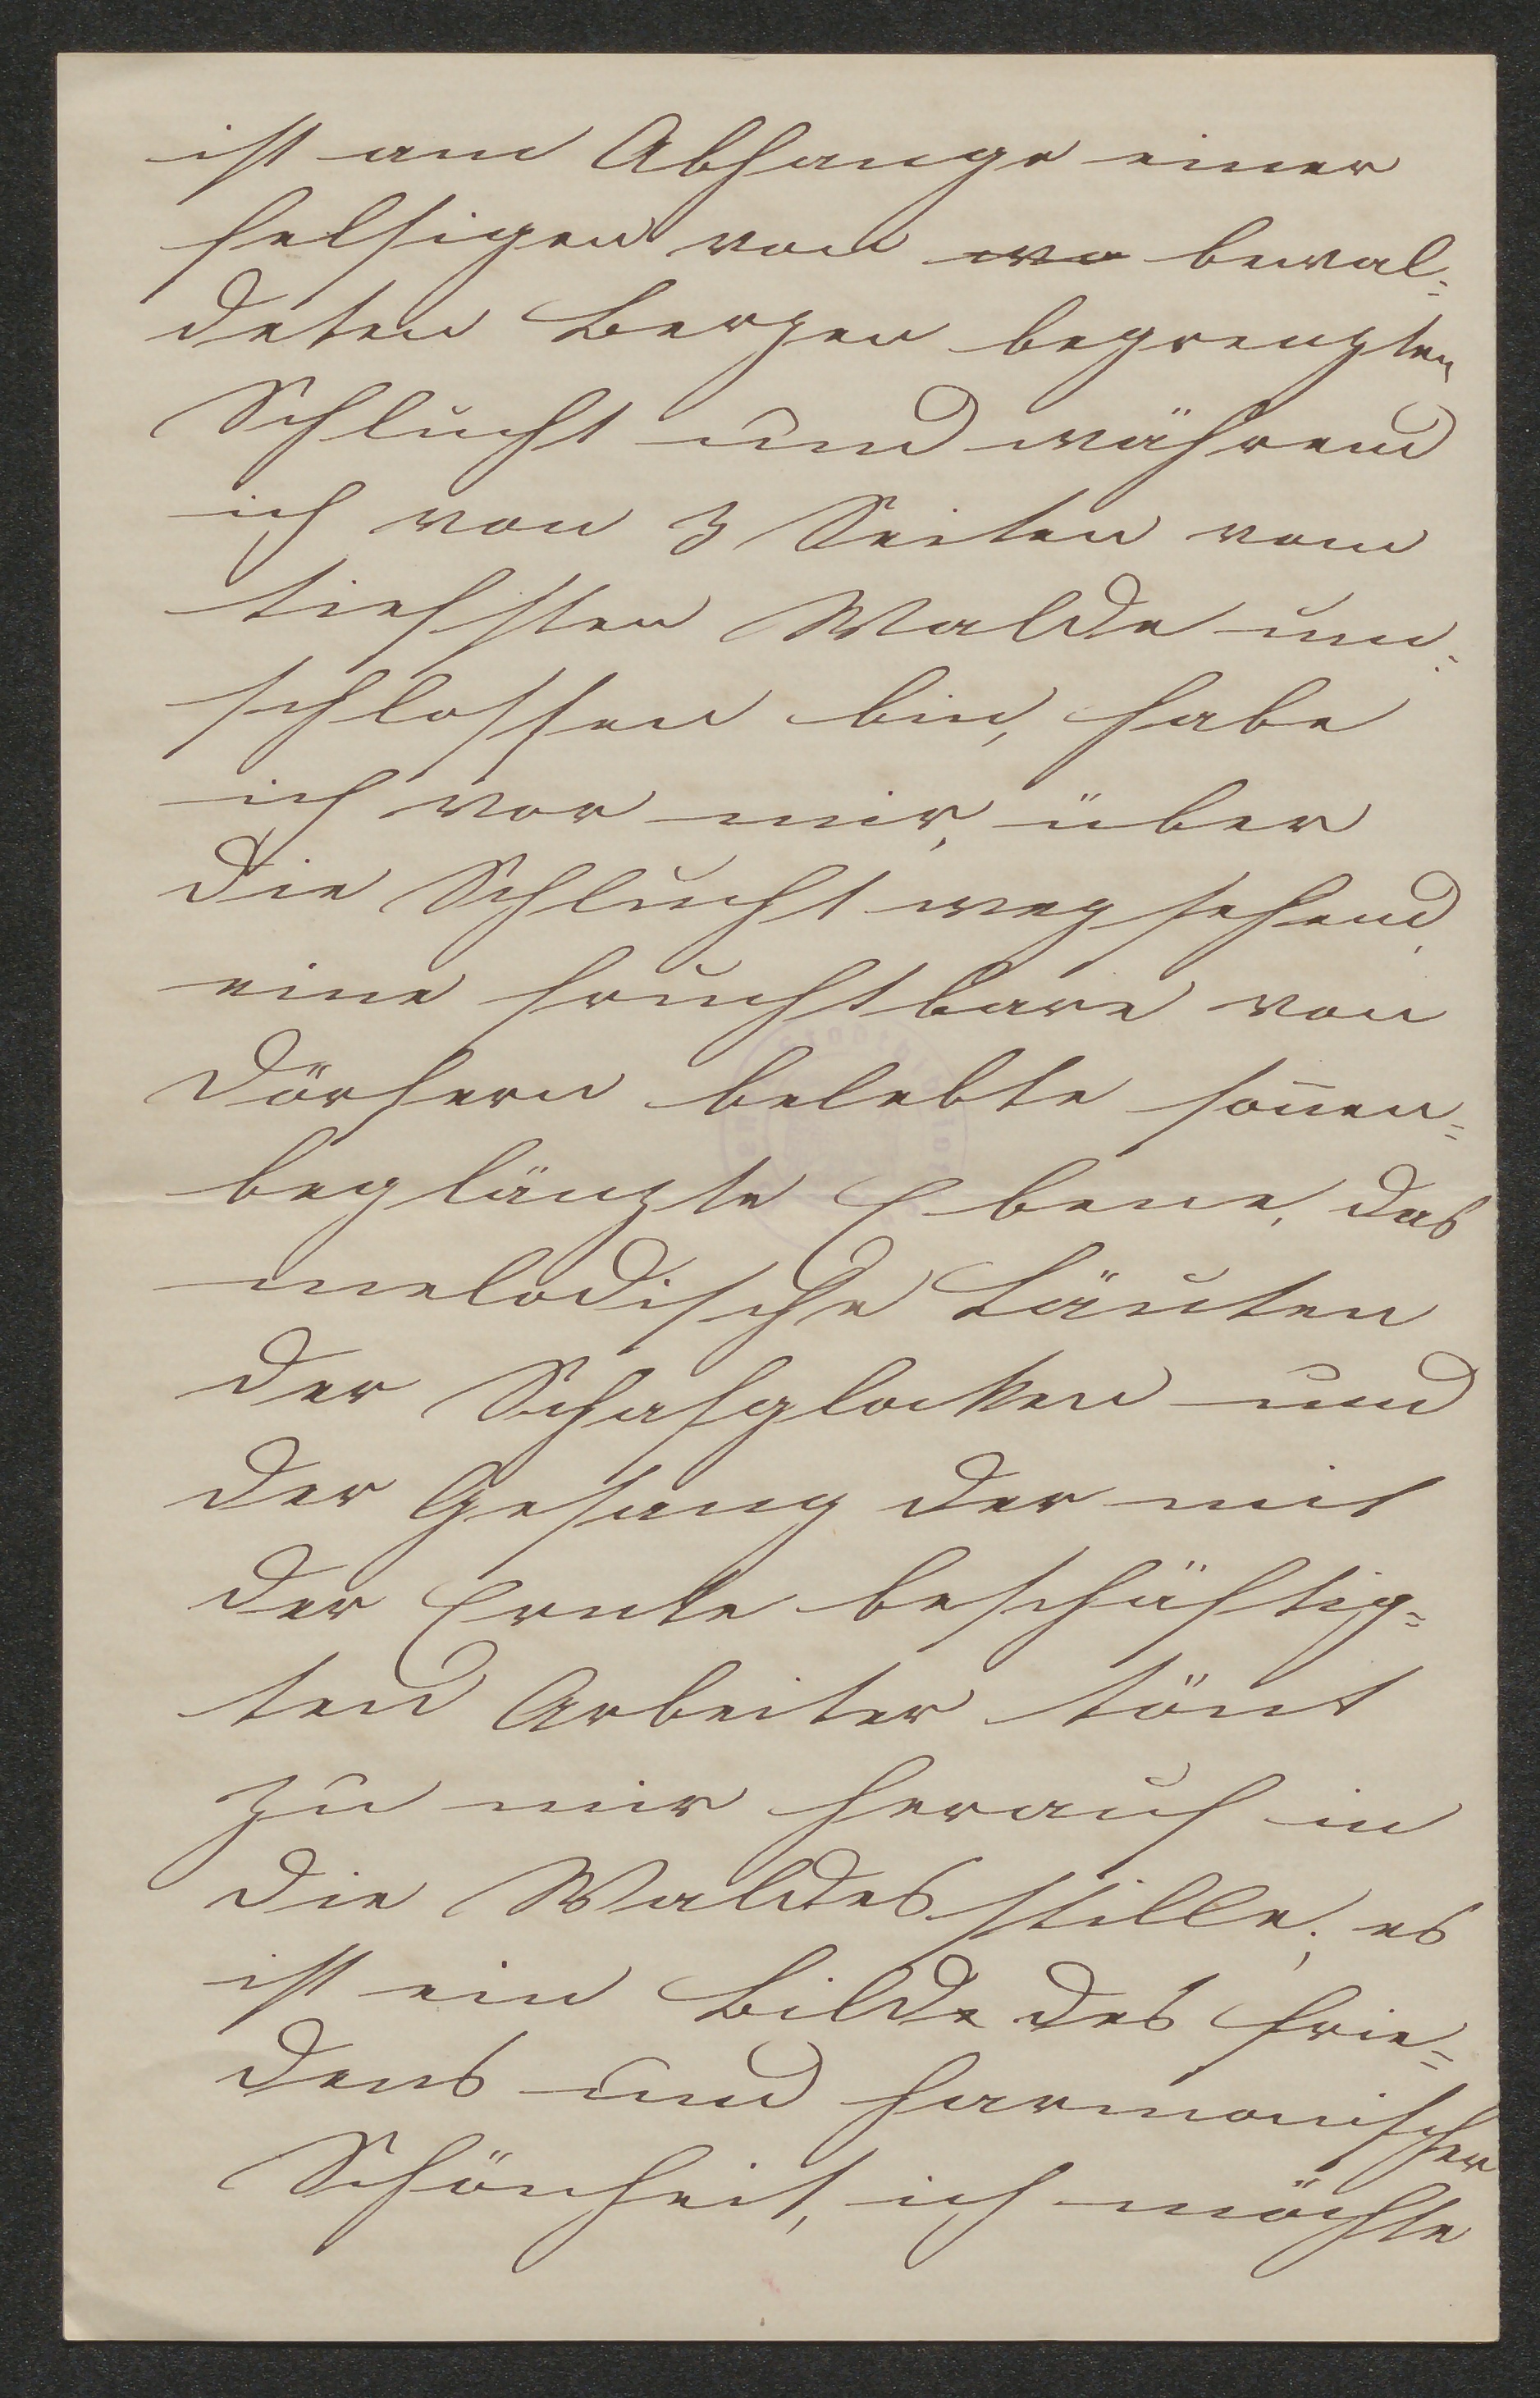 ist am Abhange einer
felsigen von wo bewal=
deten Bergen begrenzten
Schlucht und während
ich von 3 Seiten vom
tiefsten Walde um=
schlossen bin, habe
ich vor mir, über
die Schlucht wegsehend,
eine fruchtbare von
Dörfern belebte soñen=
beglänzte Ebene, das
melodische Läuten
der Schafglocken und
der Gesang der mit
der Ernte beschäftig=
ten Arbeiter tönt
zu mir herauf in
die Waldesstille; es
ist ein Bilde des Frie=
dens und harmonischer
Schönheit, ich möchte